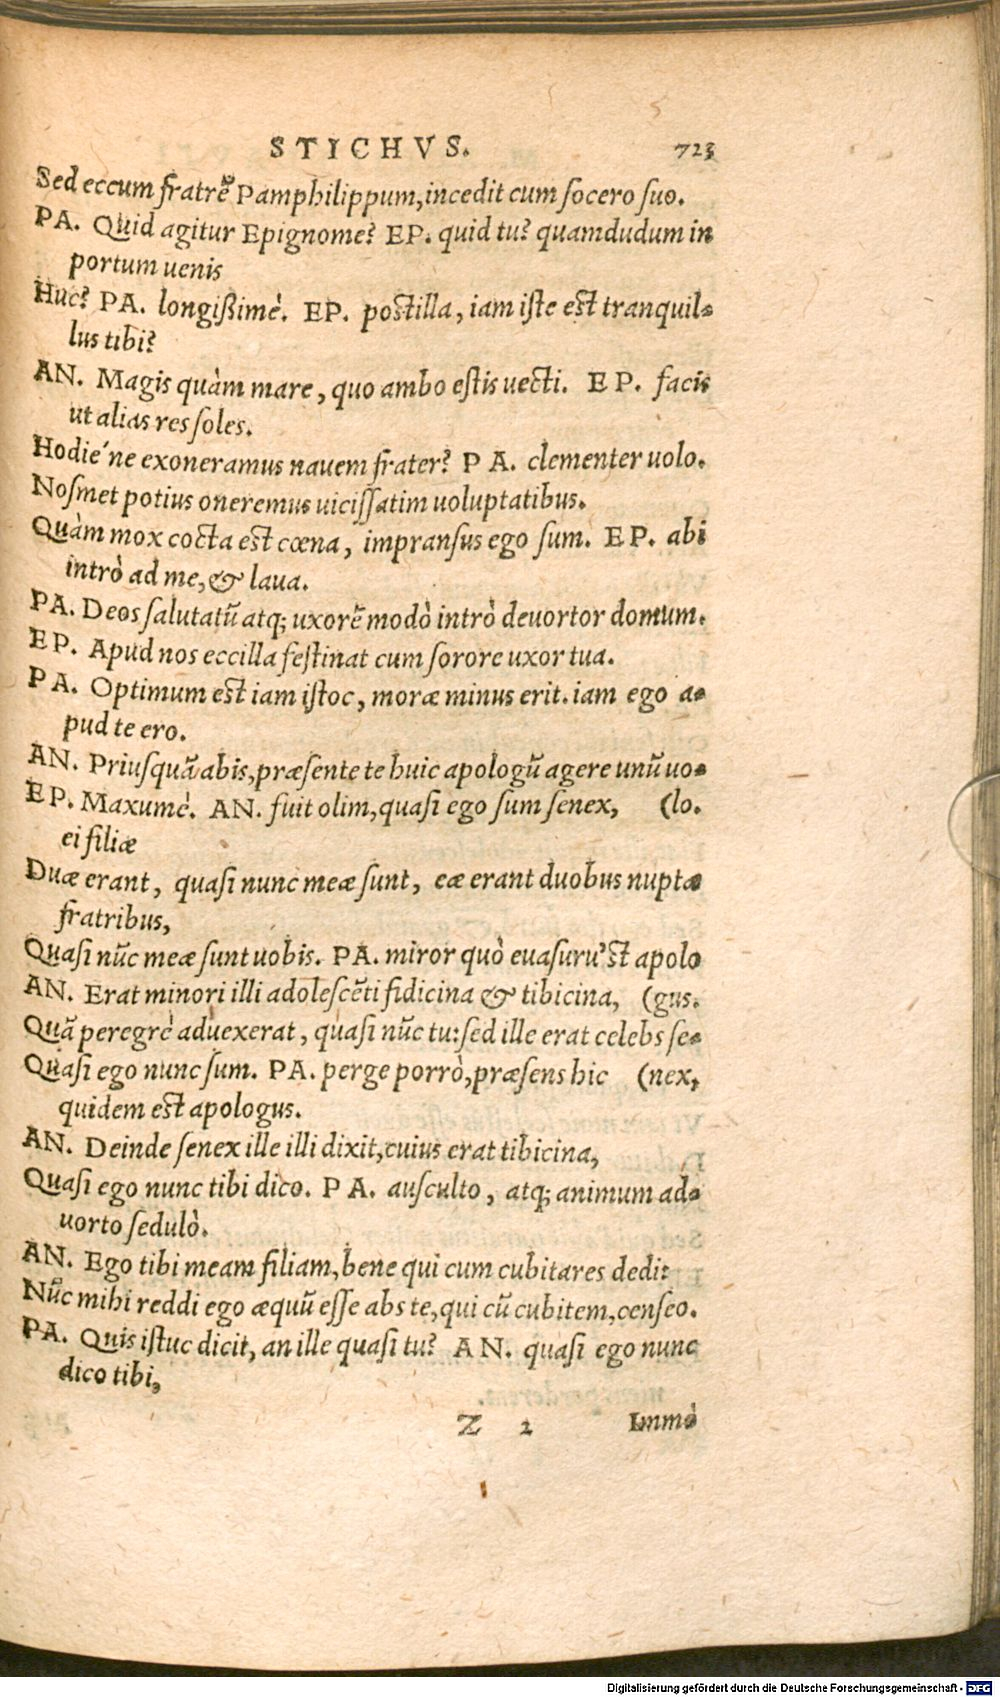 STICHVS. 723
Sed eccum fratrẽ Pamphilippum, incedit cum socero suo.
PA. Quid agitur Epignome? EP. quid tu? quamdudum in
portum uenis
Huc? PA. longißimè. EP. postilla, iam iste est tranquil-
lus tibi?
AN. Magis quàm mare, quo ambo estis uecti. EP. facis
ut alias res soles.
Hodie'ne exoneramus nauem frater? PA. clementer uolo.
Nosmet potius oneremus uicissatim uoluptatibus.
Quàm mox cocta est cœna, impransus ego sum. EP. abi
intrò ad me, & laua.
PA. Deos salutatũ atq; uxorẽ modò intrò deuortor domum.
EP. Apud nos eccilla festinat cum sorore uxor tua.
PA. Optimum est iam istoc, moræ minus erit. iam ego a-
pud te ero.
AN. Priusquã abis, præsente te huic apologũ agere unũ uo-
EP. Maxumè. AN. fuit olim, quasi ego sum senex, (lo.
ei filiæ
Duæ erant, quasi nunc meæ sunt, eæ erant duobus nuptæ
fratribus,
Quasi nũc meæ sunt uobis. PA. miror quò euasuru'st apolo
AN. Erat minori illi adolescẽti fidicina & tibicina, (gus.
Quã peregrè aduexerat, quasi nũc tu: sed ille erat celebs se-
Quasi ego nunc sum. PA. perge porrò, præsens hic (nex,
quidem est apologus.
AN. Deinde senex ille illi dixit, cuius erat tibicina,
Quasi ego nunc tibi dico. PA. ausculto, atq; animum ad-
uorto sedulò.
AN. Ego tibi meam filiam, bene qui cum cubitares dedi:
Nũc mihi reddi ego æquũ esse abs te, qui cũ cubitem, censeo.
PA. Quis istuc dicit, an ille quasi tu? AN. quasi ego nunc
dico tibi,
Z 2 Immò
Digitalisierung gefördert durch die Deutsche Forschungsgemeinschaft - DFG